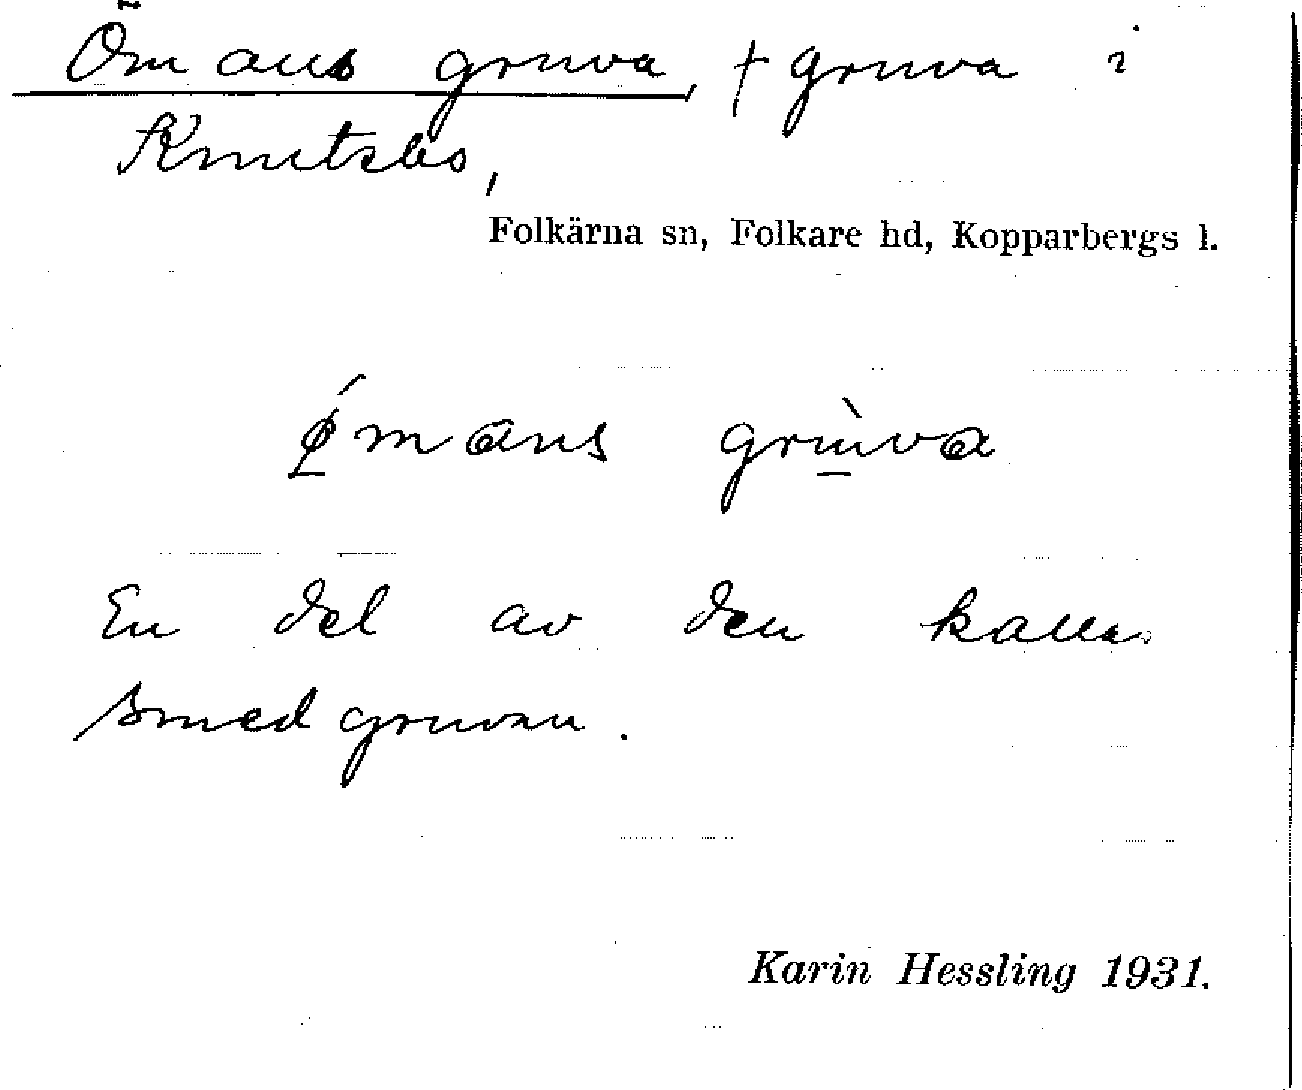 Ömans gruva, † gruva i
Knutsbo,
Folkärna sn, Folkare hd, Kopparbergs l.
ǿmans grùva
En del av den kallas
smedgruvan.
Karin Hessling 1931.